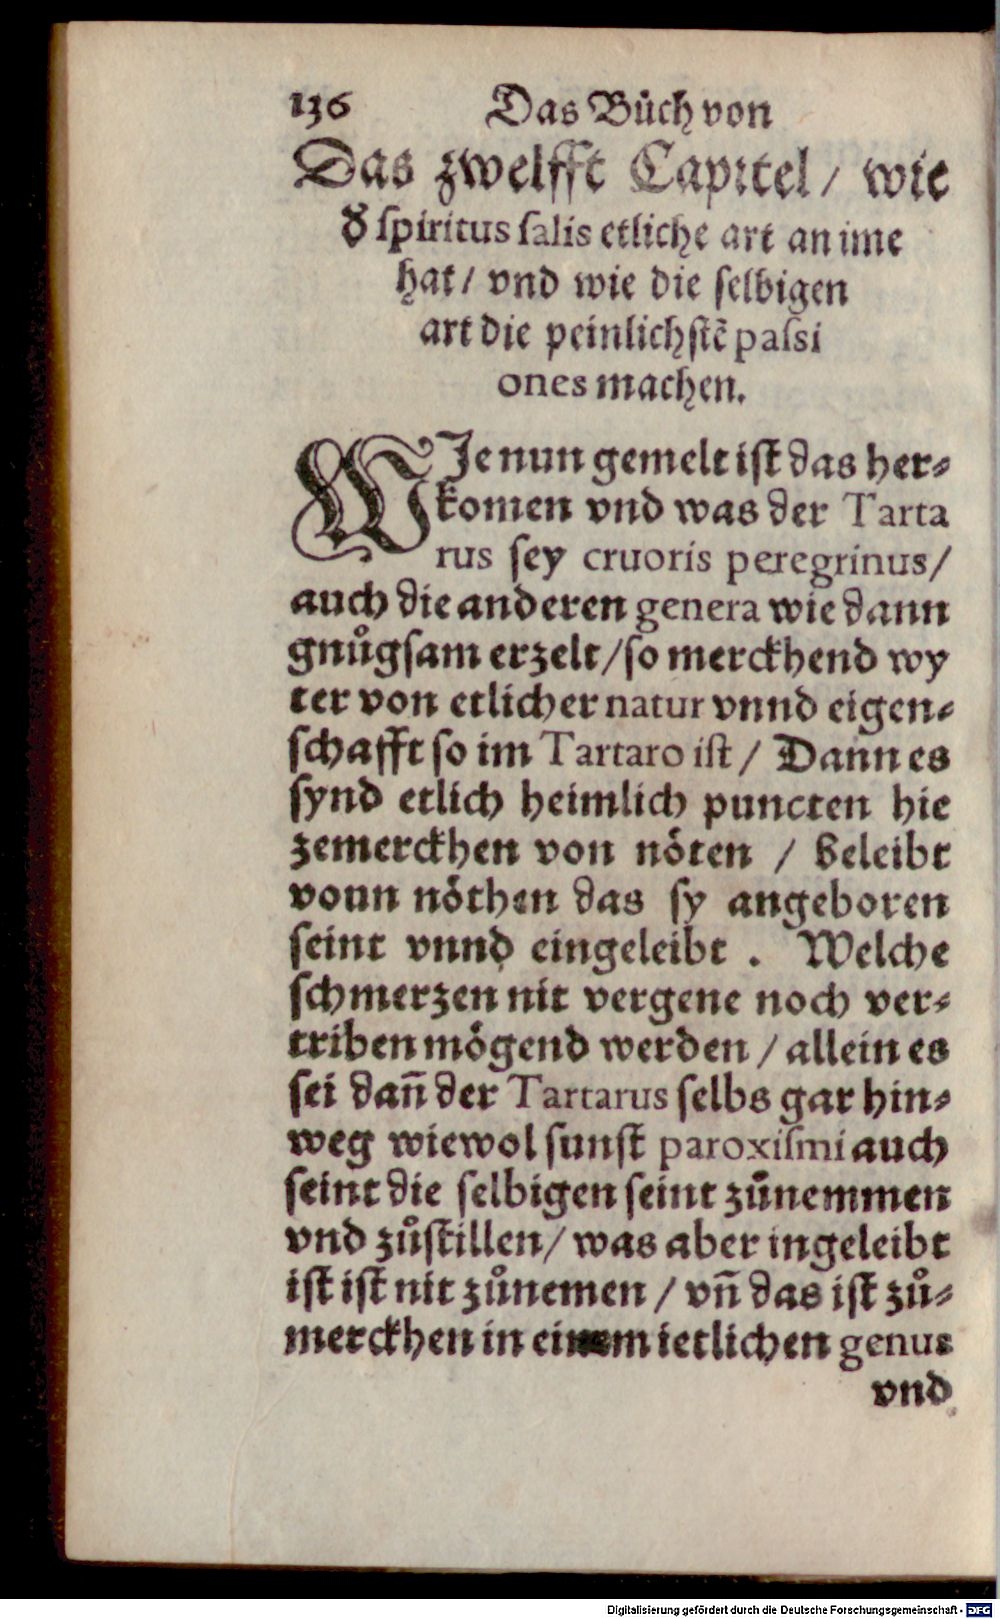 136 Das Bůch von
Das zwelfft Capitel / wie
d̕ spiritus salis etliche art an ime
hat / vnd wie die selbigen
art die peinlichstẽ passi
ones machen.
WIe nun gemelt ist das her⸗
komen vnd was der Tarta
rus sey cruoris peregrinus /
auch die anderen genera wie dann
gnůgsam erzelt / so merckhend wy
ter von etlicher natur vnnd eigen⸗
schafft so im Tartaro ist / Dann es
synd etlich heimlich puncten hie
zemerckhen von nöten / beleibt
vonn nöthen das sy angeboren
seint vnnd eingeleibt . Welche
schmerzen nit vergene noch ver⸗
triben mögend werden / allein es
sei dañ der Tartarus selbs gar hin⸗
weg wiewol sunst paroxismi auch
seint die selbigen seint zůnemmen
vnd zůstillen / was aber ingeleibt
ist ist nit zůnemen / vñ das ist zů⸗
merckhen in einem ietlichen genus
vnd
Digitalisierung gefördert durch die Deutsche Forschungsgemeinschaft - DFG